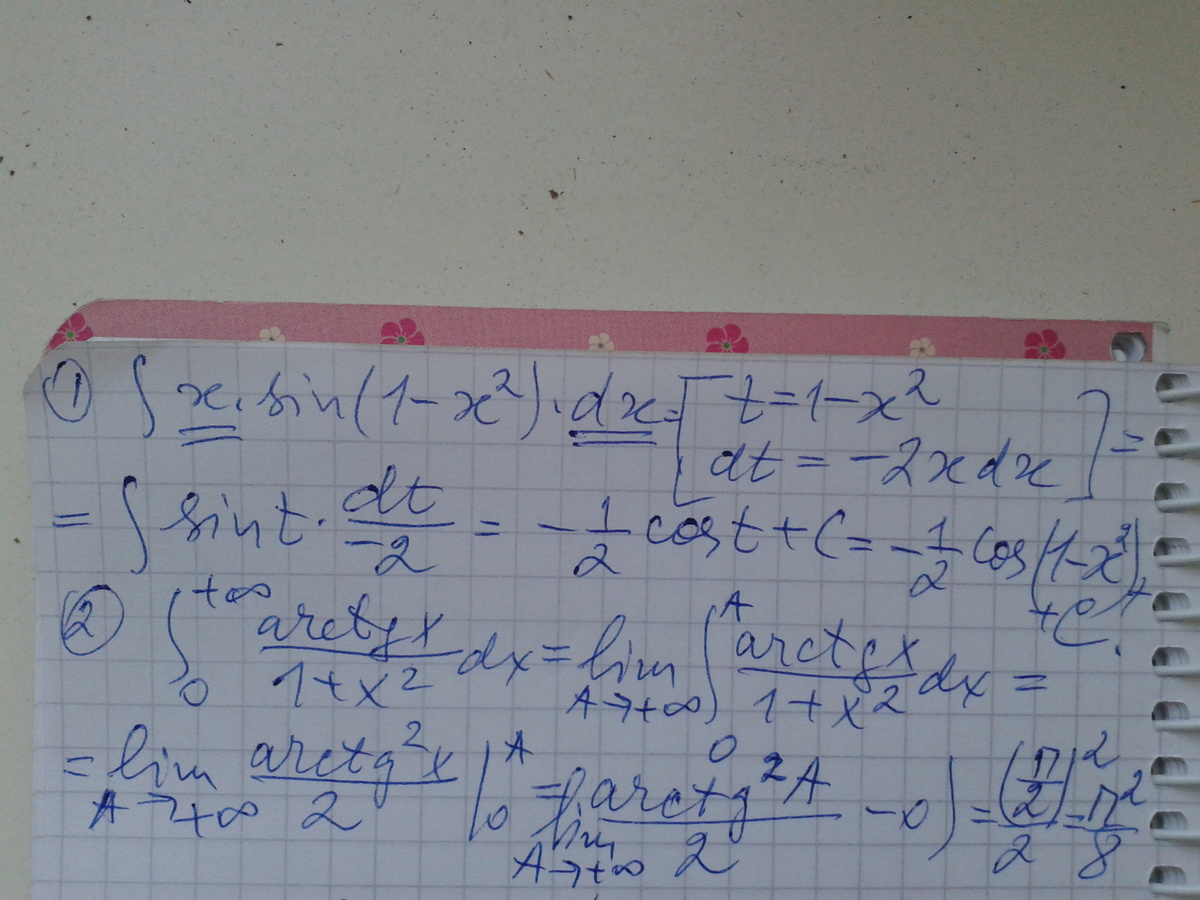 ① ∫ x · sin(1-x²) · dx = [ t = 1-x²
dt = -2xdx ] =
= ∫ sin t · dt/-2 = -1/2 cos t + C = -1/2 cos(1-x²) +
+ C.
② ∫₀^{+∞} arctg x/1+x² dx = lim_{A→+∞} ∫₀^A arctg x/1+x² dx =
= lim_{A→+∞} arctg²x/2 |₀^A = lim_{A→+∞} arctg²A/2 - 0) = (π/2)²/2 = π²/8